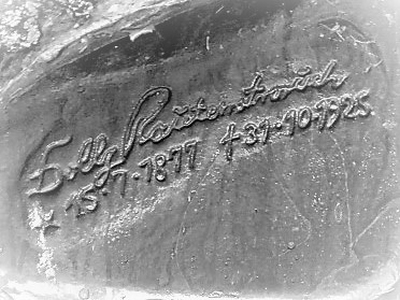 Rautenstrauch
* 15·7·1877 † 31·10·1925